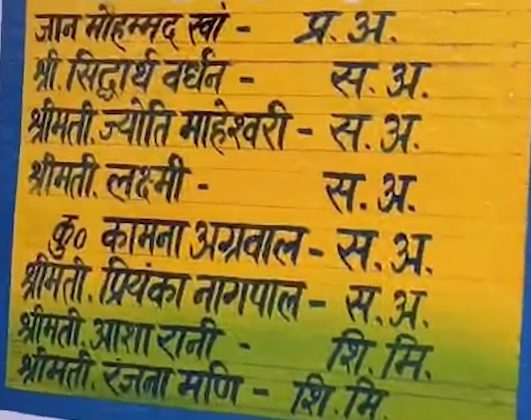 जान मोहम्मद खां - प्र. अ.
श्री. सिद्धार्थ वर्धन - स. अ.
श्रीमती. ज्योति माहेश्वरी - स. अ.
श्रीमती. लक्ष्मी - स. अ.
कु० कामना अग्रवाल - स. अ.
श्रीमती. प्रियंका नागपाल - स. अ.
श्रीमती. आशा रानी - शि. मि.
श्रीमती. रंजना मणि - शि. मि.